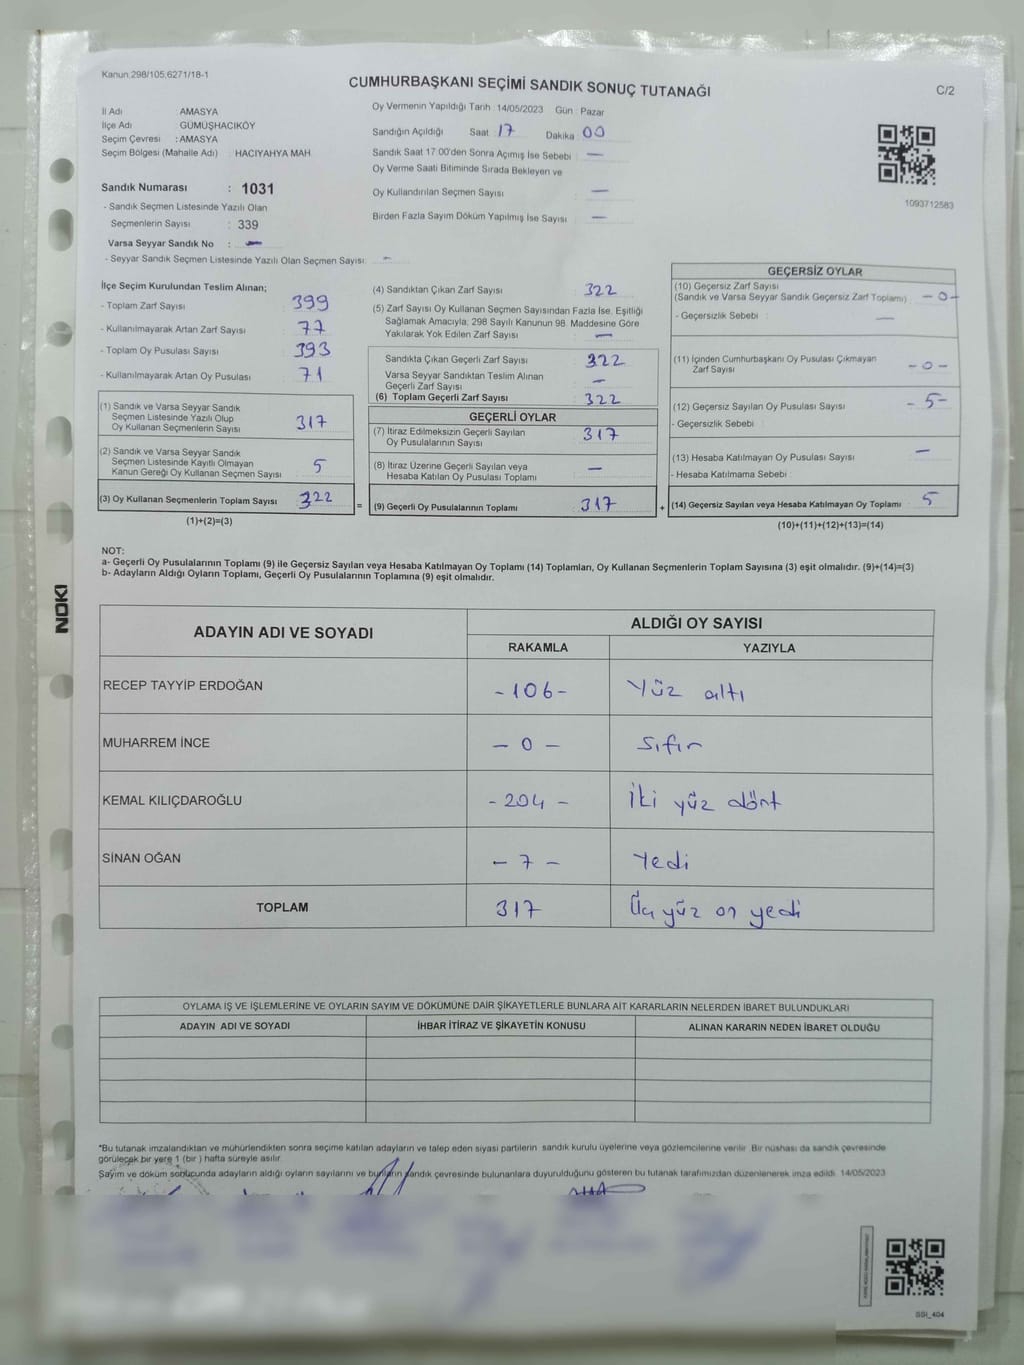 Kanun,298/105,6271/18-1
CUMHURBAŞKANI SEÇİMİ SANDIK SONUÇ TUTANAĞI
C/2
İl Adı : AMASYA
İlçe Adı : GÜMÜŞHACIKÖY
Seçim Çevresi : AMASYA
Seçim Bölgesi (Mahalle Adı) : HACIYAHYA MAH.
Sandık Numarası : 1031
- Sandık Seçmen Listesinde Yazılı Olan
Seçmenlerin Sayısı : 339
Varsa Seyyar Sandık No : -
- Seyyar Sandık Seçmen Listesinde Yazılı Olan Seçmen Sayısı: -
Oy Vermenin Yapıldığı Tarih : 14/05/2023 Gün : Pazar
Sandığın Açıldığı Saat : 17 Dakika 00
Sandık Saat 17:00'den Sonra Açımış İse Sebebi : -
Oy Verme Saati Bitiminde Sırada Bekleyen ve
Oy Kullandırılan Seçmen Sayısı -
Birden Fazla Sayım Döküm Yapılmış İse Sayısı -
1093712583
İlçe Seçim Kurulundan Teslim Alınan;
- Toplam Zarf Sayısı 399
- Kullanılmayarak Artan Zarf Sayısı 77
- Toplam Oy Pusulası Sayısı 393
- Kullanılmayarak Artan Oy Pusulası 71
(1) Sandık ve Varsa Seyyar Sandık
Seçmen Listesinde Yazılı Olup
Oy Kullanan Seçmenlerin Sayısı 317
(2) Sandık ve Varsa Seyyar Sandık
Seçmen Listesinde Kayıtlı Olmayan
Kanun Gereği Oy Kullanan Seçmen Sayısı 5
(3) Oy Kullanan Seçmenlerin Toplam Sayısı 322
(1)+(2)=(3)
(4) Sandıktan Çıkan Zarf Sayısı 322
(5) Zarf Sayısı Oy Kullanan Seçmen Sayısından Fazla İse, Eşitliği
Sağlamak Amacıyla, 298 Sayılı Kanunun 98. Maddesine Göre
Yakılarak Yok Edilen Zarf Sayısı -
Sandıkta Çıkan Geçerli Zarf Sayısı 322
Varsa Seyyar Sandıktan Teslim Alınan
Geçerli Zarf Sayısı -
(6) Toplam Geçerli Zarf Sayısı 322
GEÇERLİ OYLAR
(7) İtiraz Edilmeksizin Geçerli Sayılan
Oy Pusulalarının Sayısı 317
(8) İtiraz Üzerine Geçerli Sayılan veya
Hesaba Katılan Oy Pusulası Toplamı -
= (9) Geçerli Oy Pusulalarının Toplamı 317
GEÇERSİZ OYLAR
(10) Geçersiz Zarf Sayısı
(Sandık ve Varsa Seyyar Sandık Geçersiz Zarf Toplamı) -0-
- Geçersizlik Sebebi : -
(11) İçinden Cumhurbaşkanı Oy Pusulası Çıkmayan
Zarf Sayısı -0-
(12) Geçersiz Sayılan Oy Pusulası Sayısı -5-
- Geçersizlik Sebebi
(13) Hesaba Katılmayan Oy Pusulası Sayısı -
- Hesaba Katılmama Sebebi :
+ (14) Geçersiz Sayılan veya Hesaba Katılmayan Oy Toplamı 5
(10)+(11)+(12)+(13)=(14)
NOT:
a- Geçerli Oy Pusulalarının Toplamı (9) ile Geçersiz Sayılan veya Hesaba Katılmayan Oy Toplamı (14) Toplamları, Oy Kullanan Seçmenlerin Toplam Sayısına (3) eşit olmalıdır. (9)+(14)=(3)
b- Adayların Aldığı Oyların Toplamı, Geçerli Oy Pusulalarının Toplamına (9) eşit olmalıdır.
NOKI
ADAYIN ADI VE SOYADI
ALDIĞI OY SAYISI
RAKAMLA YAZIYLA
RECEP TAYYİP ERDOĞAN -106- Yüz altı
MUHARREM İNCE - 0 - Sıfır
KEMAL KILIÇDAROĞLU - 204 - İki yüz dört
SİNAN OĞAN - 7 - Yedi
TOPLAM 317 Üç yüz on yedi
OYLAMA İŞ VE İŞLEMLERİNE VE OYLARIN SAYIM VE DÖKÜMÜNE DAİR ŞİKAYETLERLE BUNLARA AİT KARARLARIN NELERDEN İBARET BULUNDUKLARI
ADAYIN ADI VE SOYADI İHBAR İTİRAZ VE ŞİKAYETİN KONUSU ALINAN KARARIN NEDEN İBARET OLDUĞU
*Bu tutanak imzalandıktan ve mühürlendikten sonra seçime katılan adayların ve talep eden siyasi partilerin sandık kurulu üyelerine veya gözlemcilerine verilir. Bir nüshası da sandık çevresinde
görülecek bir yere 1 (bir ) hafta süreyle asılır.
Sayım ve döküm sonucunda adayların aldığı oyların sayılarını ve bunların sandık çevresinde bulunanlara duyurulduğunu gösteren bu tutanak tarafımızdan düzenlenerek imza edildi. 14/05/2023
SSI_404